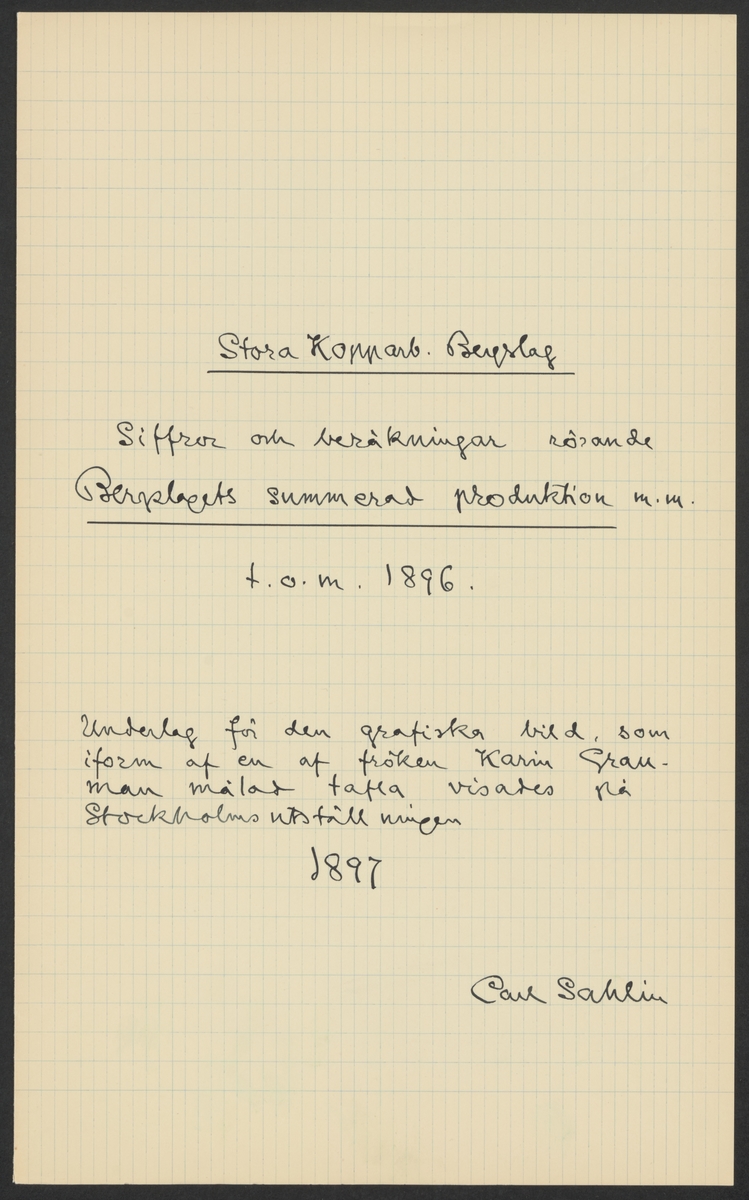 Stora Kopparb. Bergslag
Siffror och beräkningar rörande
Bergslagets summerad produktion m.m.
t.o.m. 1896.
Underlag för den grafiska bild, som
iform af en af fröken Karin Grau-
man målad tafla visades på
Stockholmsutställningen
1897
Carl Sahlin